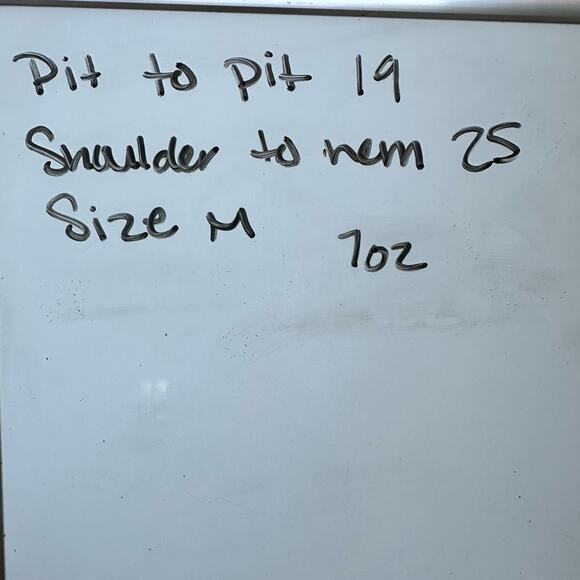 Pit to pit 19
Shoulder to hem 25
Size M
7oz